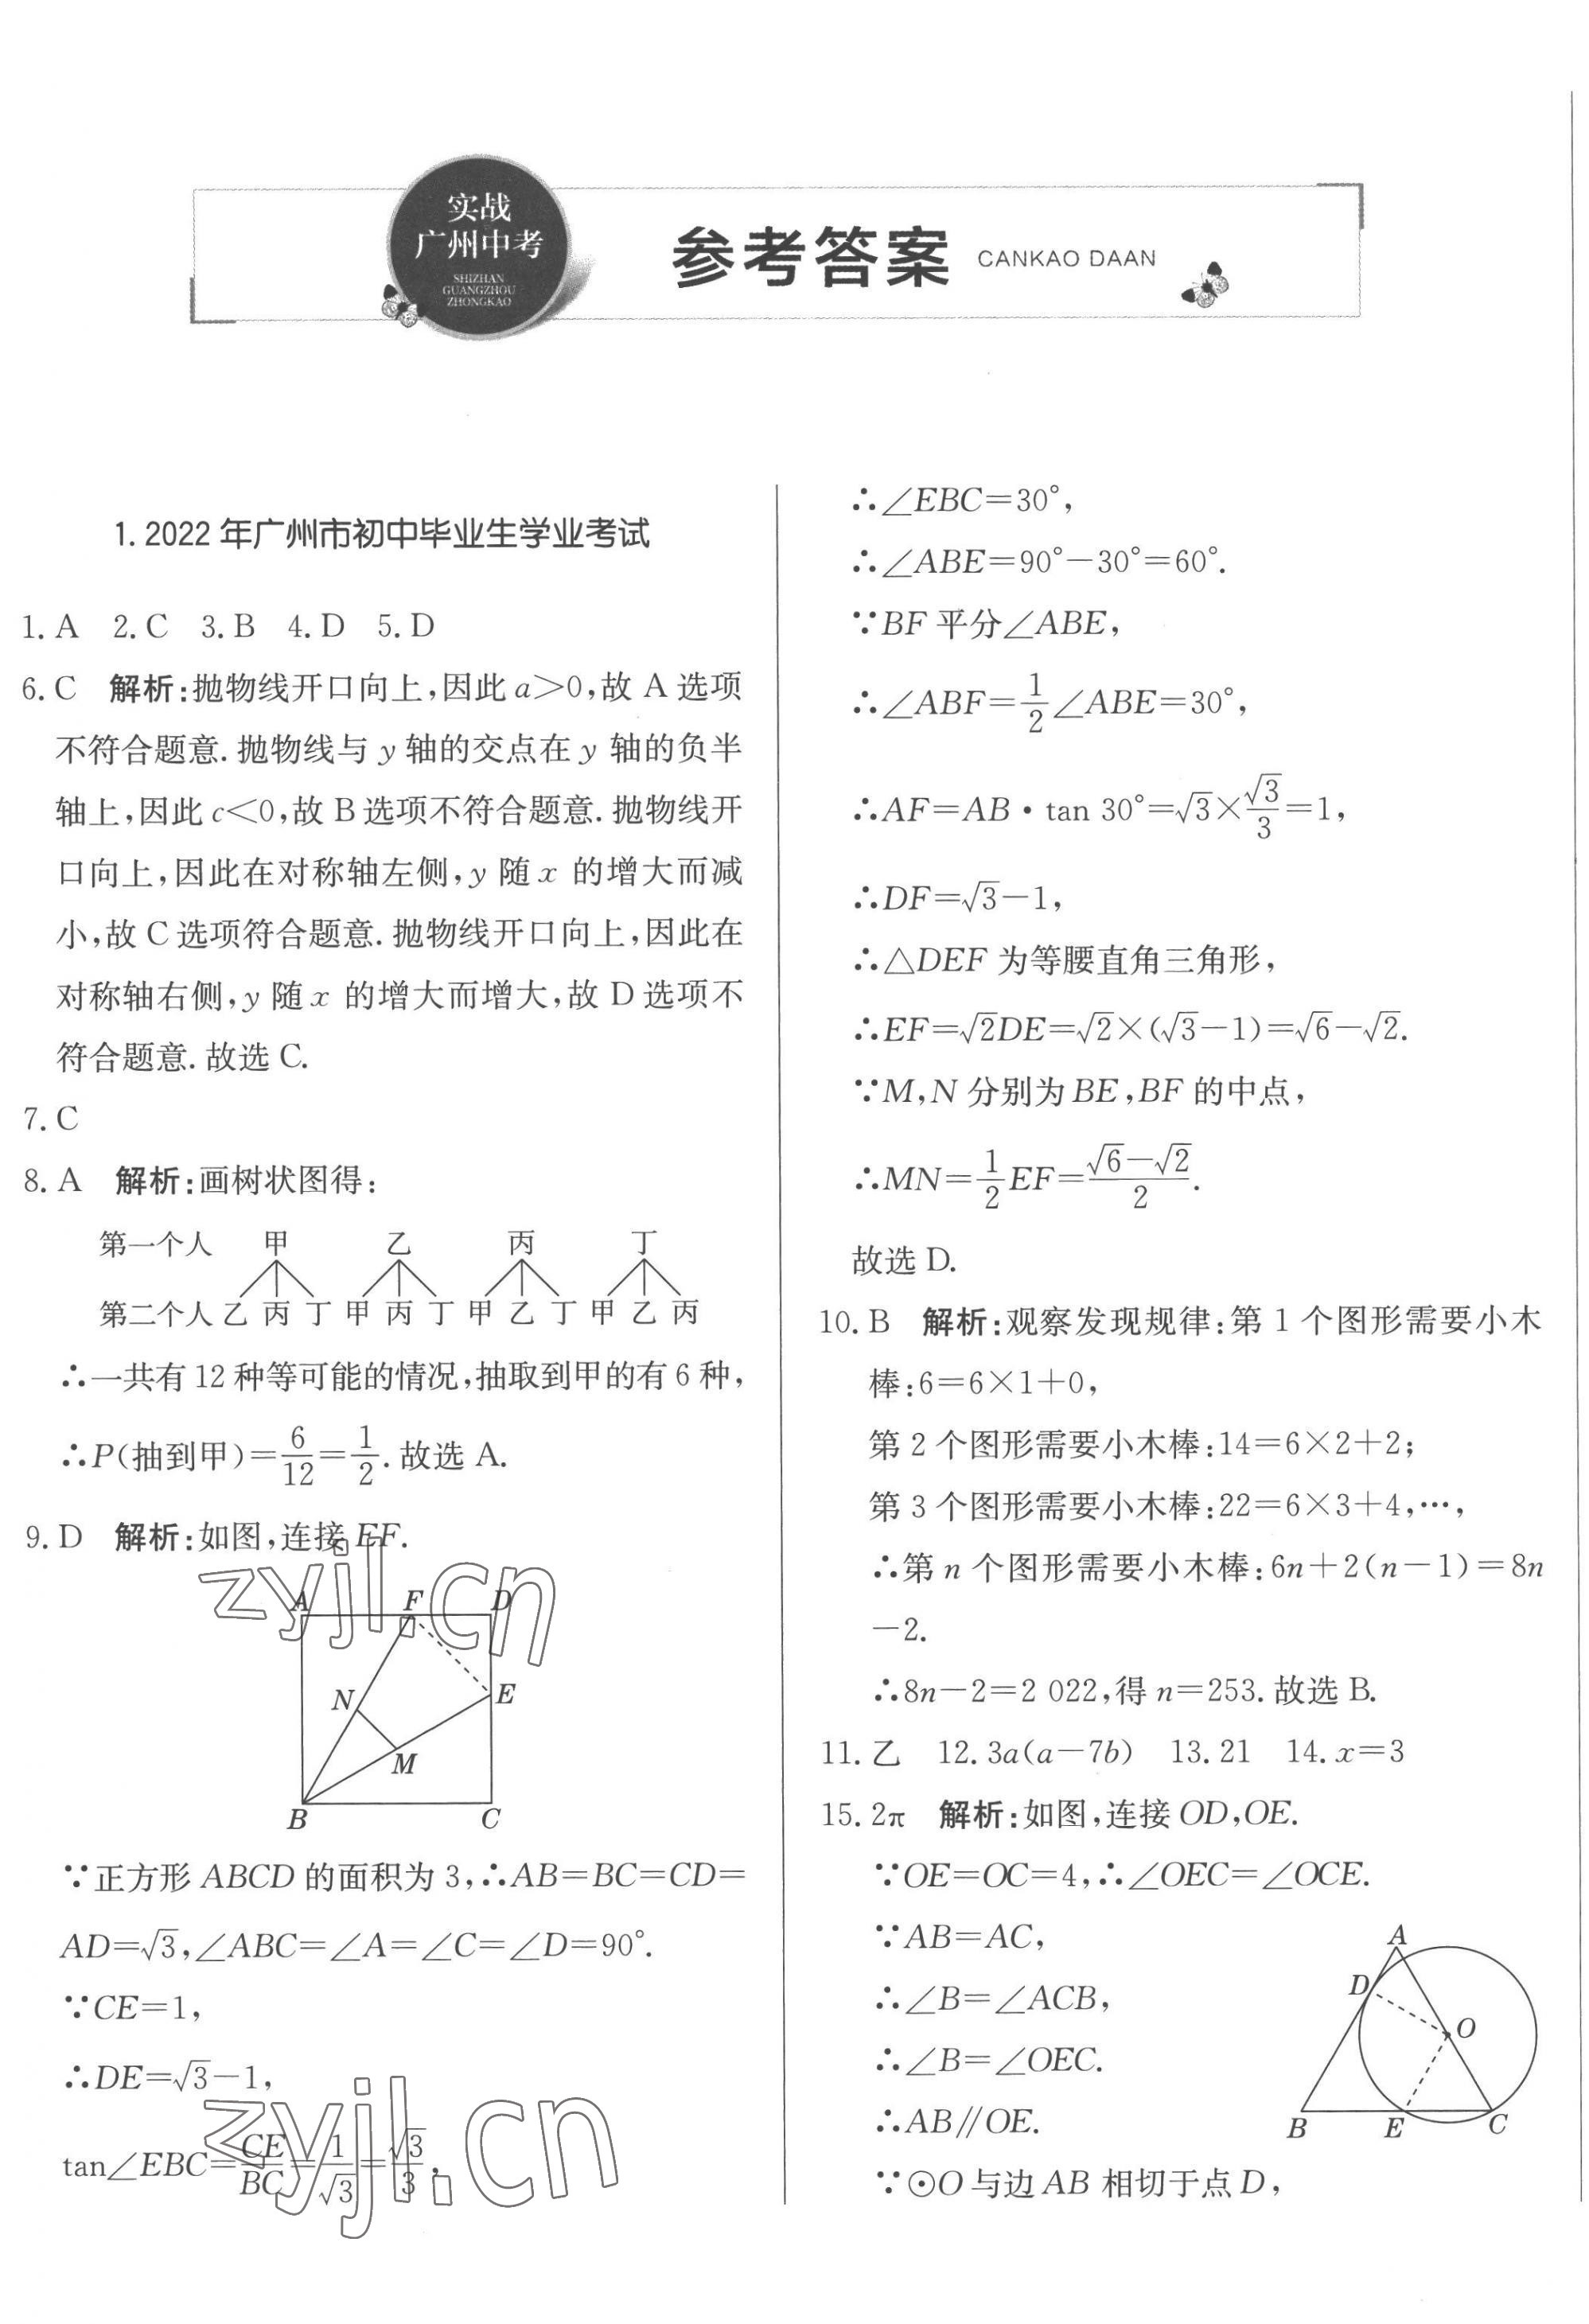 实战
广州中考
SHIZHAN
GUANGZHOU
ZHONGKAO
参考答案 CANKAO DAAN
1. 2022 年广州市初中毕业生学业考试
1. A 2. C 3. B 4. D 5. D
6. C 解析:抛物线开口向上,因此 a>0,故 A 选项
不符合题意. 抛物线与 y 轴的交点在 y 轴的负半
轴上,因此 c<0,故 B 选项不符合题意. 抛物线开
口向上,因此在对称轴左侧,y 随 x 的增大而减
小,故 C 选项符合题意. 抛物线开口向上,因此在
对称轴右侧,y 随 x 的增大而增大,故 D 选项不
符合题意. 故选 C.
7. C
8. A 解析:画树状图得:
第一个人 甲 乙 丙 丁
第二个人 乙 丙 丁 甲 丙 丁 甲 乙 丁 甲 乙 丙
∴一共有 12 种等可能的情况,抽取到甲的有 6 种,
∴P(抽到甲)=6/12=1/2. 故选 A.
9. D 解析:如图,连接 EF.
zyjl.cn
A F D
N E
M
B C
∵正方形 ABCD 的面积为 3,∴AB=BC=CD=
AD=√3,∠ABC=∠A=∠C=∠D=90°.
∵CE=1,
∴DE=√3-1,
tan∠EBC=CE/BC=1/√3=√3/3,
zyjl.cn
∴∠EBC=30°,
∴∠ABE=90°-30°=60°.
∵BF 平分∠ABE,
∴∠ABF=1/2∠ABE=30°,
∴AF=AB·tan 30°=√3×√3/3=1,
∴DF=√3-1,
∴△DEF 为等腰直角三角形,
∴EF=√2DE=√2×(√3-1)=√6-√2.
∵M,N 分别为 BE,BF 的中点,
∴MN=1/2EF=(√6-√2)/2.
故选 D.
10. B 解析:观察发现规律:第 1 个图形需要小木
棒:6=6×1+0,
第 2 个图形需要小木棒:14=6×2+2;
第 3 个图形需要小木棒:22=6×3+4,…,
∴第 n 个图形需要小木棒:6n+2(n-1)=8n
-2.
∴8n-2=2 022,得 n=253. 故选 B.
11. 乙 12. 3a(a-7b) 13. 21 14. x=3
15. 2π 解析:如图,连接 OD,OE.
∵OE=OC=4,∴∠OEC=∠OCE.
∵AB=AC,
∴∠B=∠ACB,
∴∠B=∠OEC.
∴AB∥OE.
∵⊙O 与边 AB 相切于点 D,
A
D
O
B E C